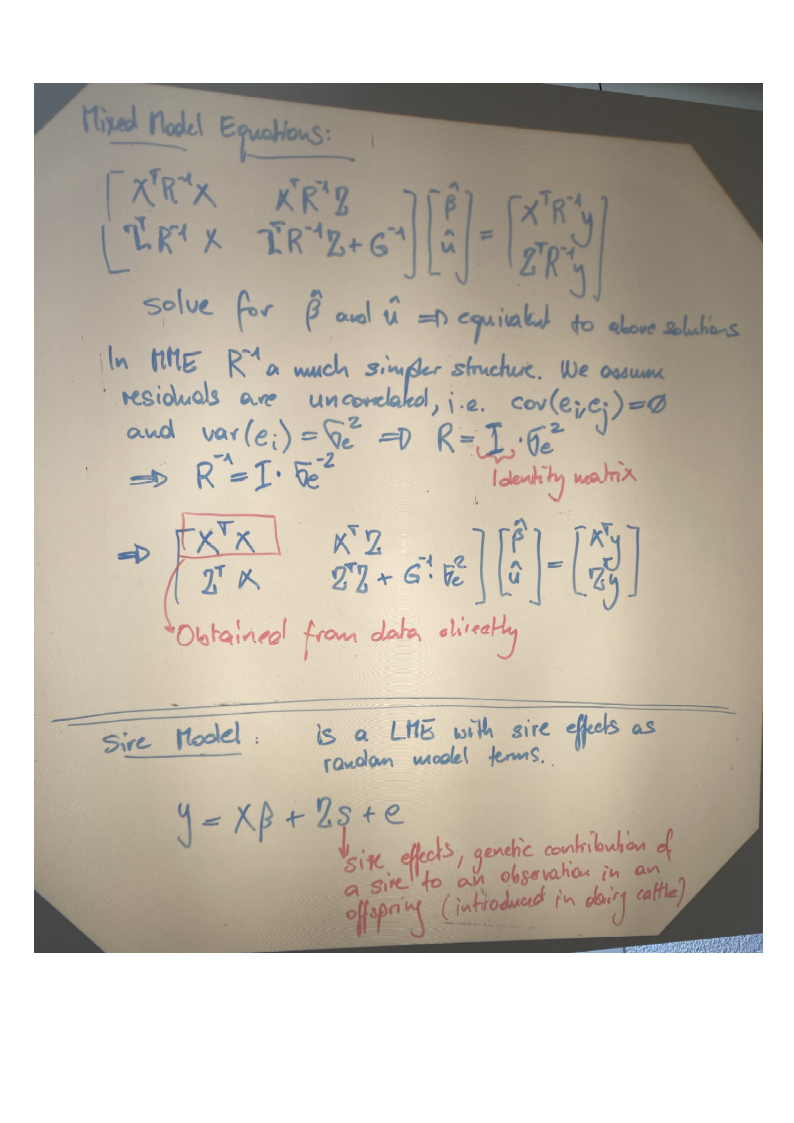 Mixed Model Equations:
[ XᵀR⁻¹X XᵀR⁻¹Z ] [ β̂ ] = [ XᵀR⁻¹y ]
[ ZᵀR⁻¹X ZᵀR⁻¹Z + G⁻¹ ] [ û ] [ ZᵀR⁻¹y ]
solve for β̂ and û ⇒ equivalent to above solutions
In MME R⁻¹ a much simpler structure. We assume
residuals are uncorrelated, i.e. cov(eᵢ,eⱼ) = ∅
and var(eᵢ) = σₑ² ⇒ R = I · σₑ²
⇒ R⁻¹ = I · σₑ⁻²
Identity matrix
⇒ [ XᵀX XᵀZ ] [ β̂ ] = [ Xᵀy ]
[ ZᵀX ZᵀZ + G⁻¹ · σₑ² ] [ û ] [ Zᵀy ]
Obtained from data directly
Sire Model : is a LME with sire effects as
random model terms.
y = Xβ + Zs + e
sire effects, genetic contribution of
a sire to an observation in an
offspring (introduced in dairy cattle)